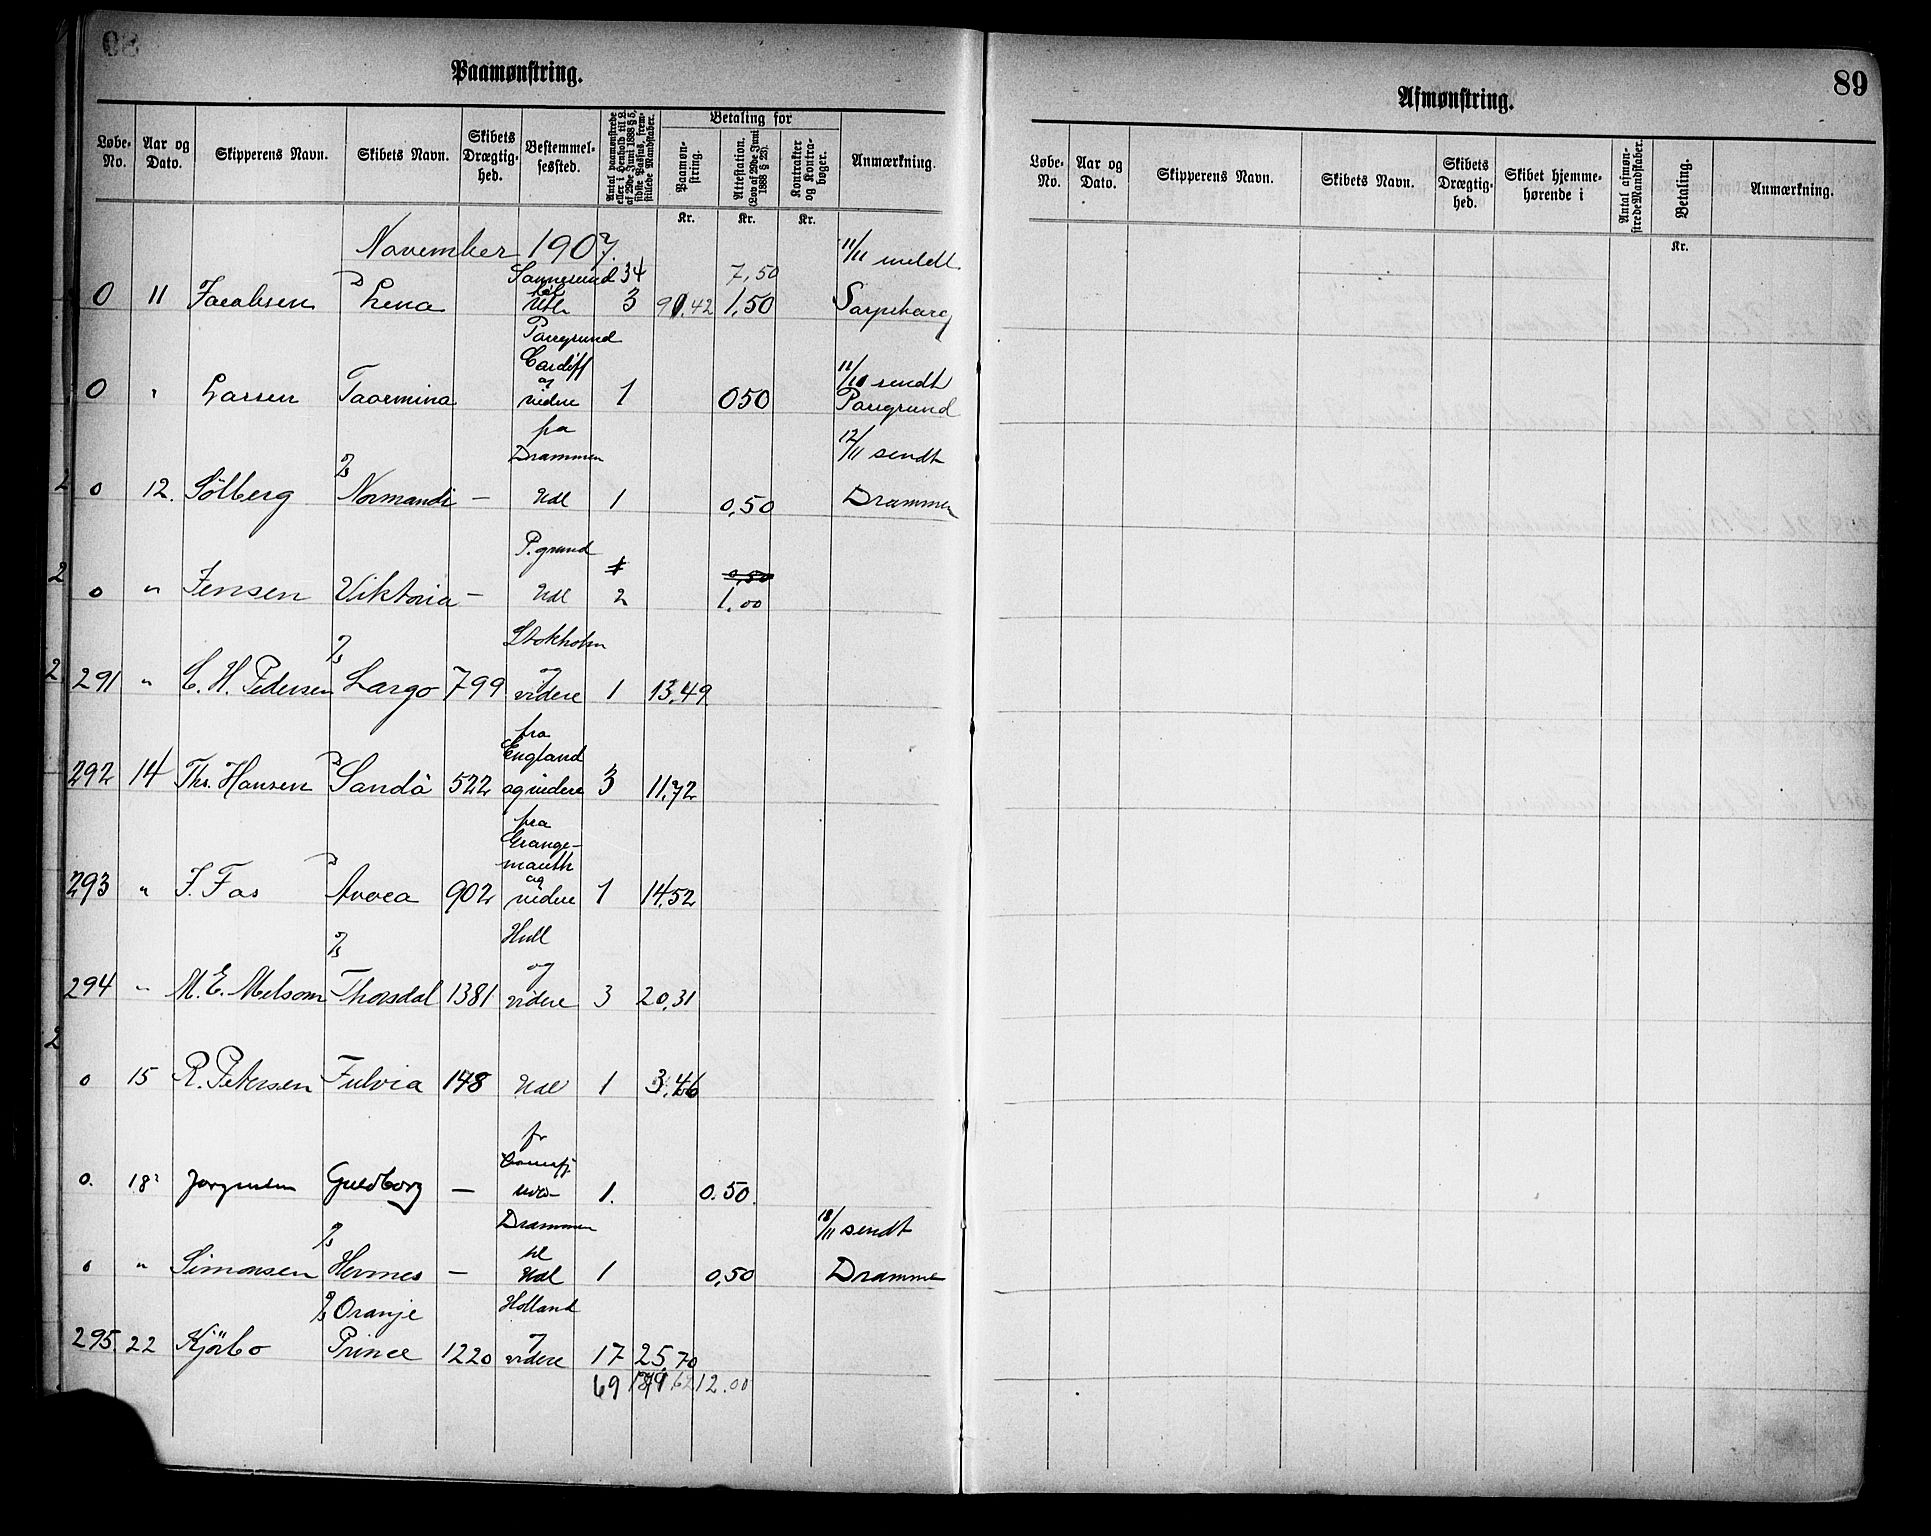 Paamønstring.
Løbe-No. Aar og Dato. Skipperens Navn. Skibets Navn. Skibets Drægtig-hed. Bestemmel-sessted. Antal paamønstrede eller i Henhold til L. af 29de Juni 1888 § 5, sidste Passus, frem-stillede Mandskaber. Betaling for Paamøn-string. Attestation. (Lov af 29de Juni 1888 § 23). Kontrakter og Kontra-bøger. Anmærkning.
Kr. Kr. Kr.
November 1907. 11/11 meldt
Sannesund 34 7,50
0 11 Jacobsen Lena til Udl 3 91.42 1,50 Sarpsborg
Porsgrund
Cardiff 11/11 sendt
0 " Larsen Taormina og videre 1 050 Porsgrund
fra
Drammen 12/11 sendt
0 12. Sölberg Normandi — Udl 1 0,50 Drammen
P.grund
0 " Jensen Viktoria — Udl 2 1,00
Stokholm
og
291 " C. H. Pedersen Largo 799 videre 1 13,49
fra
England
292 14 Ths. Hansen Sandö 522 og videre 3 11,72
fra
Grange-
mouth
og
293 " J. Fos Avoca 902 videre 1 14,52
Hull
og
294 " M. E. Melsom Thorsdal 1381 videre 3 20,31
0 15 R. Petersen Fulvia 148 Udl 1 3,46
fr
0. 18 Jørgensen Guldborg — 1. 0.50.
Drammen 18/11 sendt
til
0 " Simonsen Hermes — Udl 1 0,50 Drammen
Oranje Holland
og
295. 22 Kjörbo Prince 1220 videre 17 25,70
69 12.00
89
Afmønstring.
Løbe-No. Aar og Dato. Skipperens Navn. Skibets Navn. Skibets Drægtig-hed. Skibet hjemme-hørende i Antal afmøn-strede Mandskaber. Betaling. Anmærkning.
Kr.